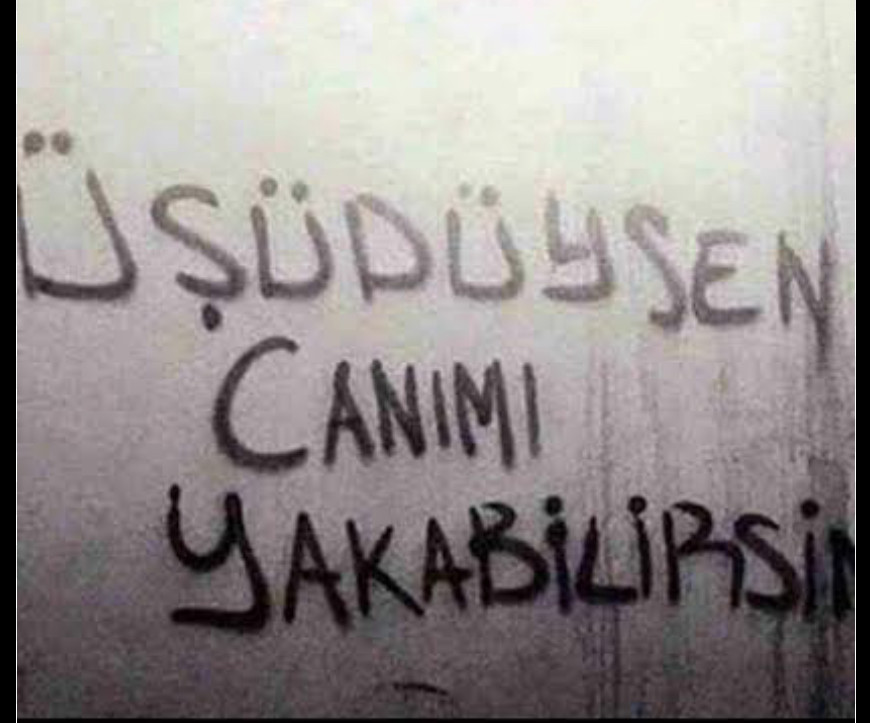 ÜŞÜDÜYSEN
CANIMI
YAKABİLİRSİN